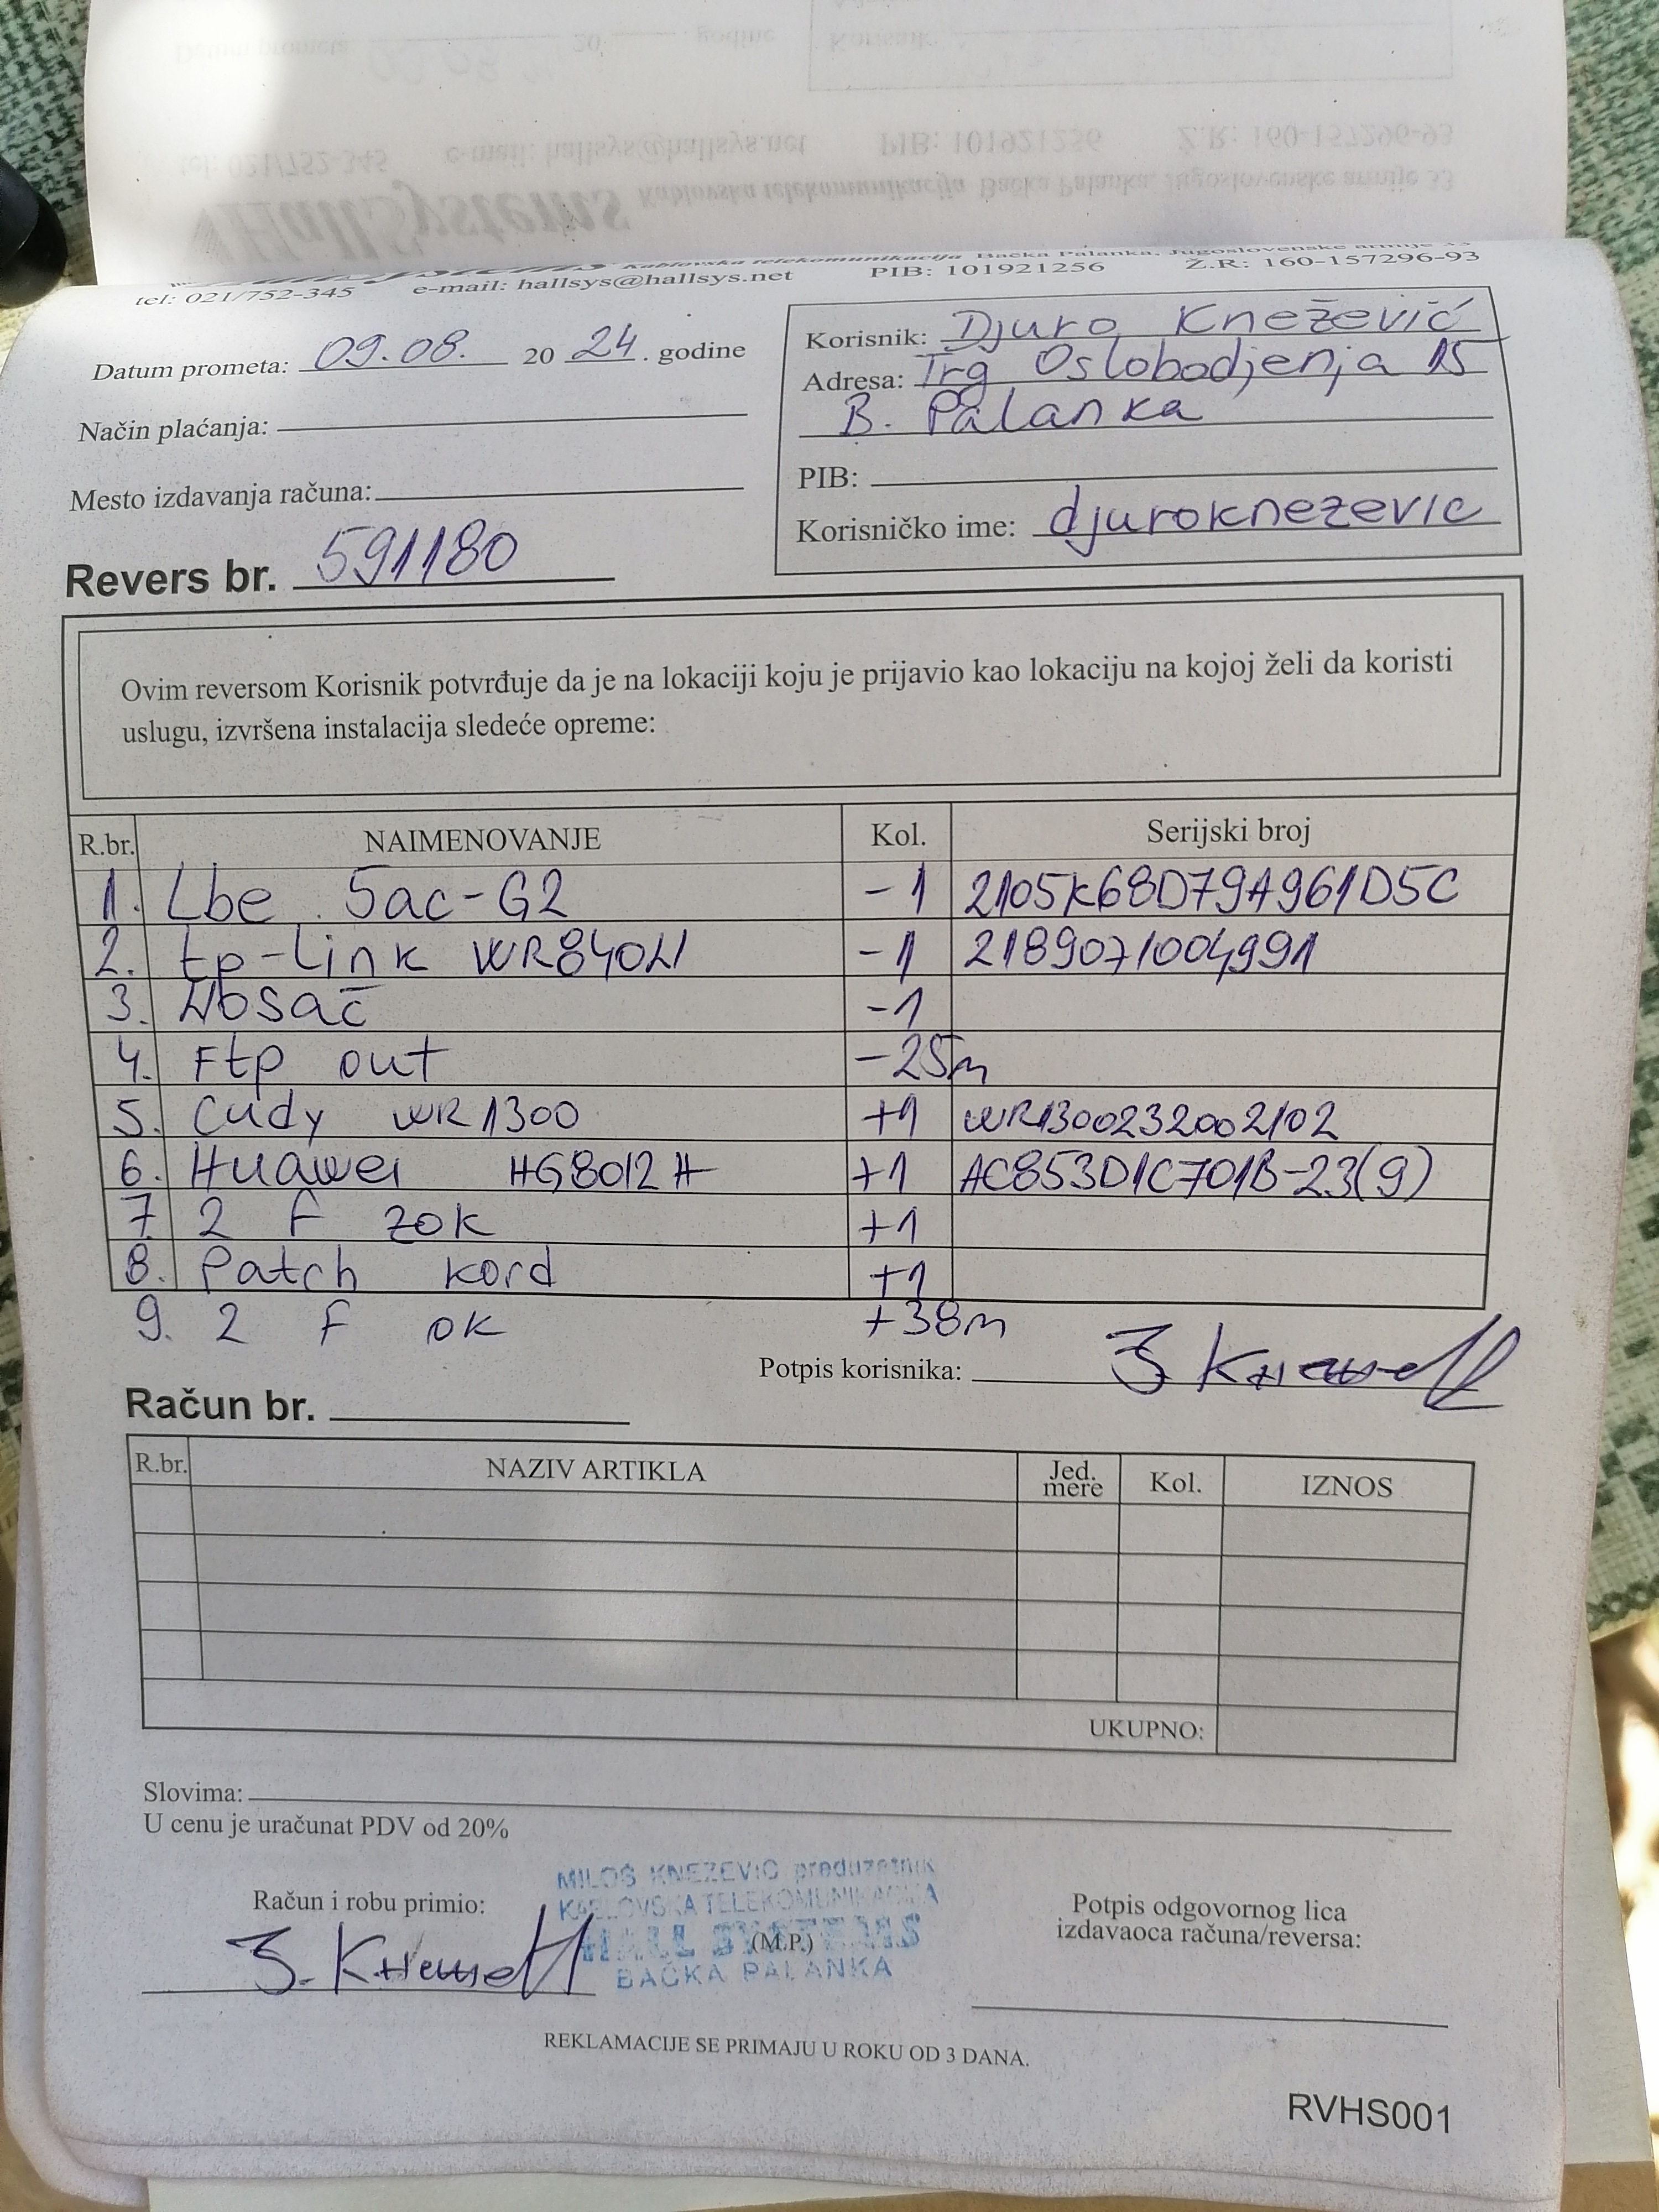 HallSystems Kablovska telekomunikacija Bačka Palanka, Jugoslovenske armije 33
tel: 021/752-345 e-mail: hallsys@hallsys.net PIB: 101921256 Ž.R: 160-157296-93
Datum prometa: 09.08. 20 24. godine
Način plaćanja:
Mesto izdavanja računa:
Revers br. 591180
Korisnik: Djuro Knežević
Adresa: Trg Oslobodjenja 15
B. Palanka
PIB:
Korisničko ime: djuroknezevic
Ovim reversom Korisnik potvrđuje da je na lokaciji koju je prijavio kao lokaciju na kojoj želi da koristi
uslugu, izvršena instalacija sledeće opreme:
R.br. NAIMENOVANJE Kol. Serijski broj
1. Lbe 5ac-G2 -1 2105K68D79A961D5C
2. tp-link WR840N -1 2189071004991
3. Nosač -1
4. Ftp out -25m
5. Cudy WR1300 +1 WR1300232002102
6. Huawei HG8012H +1 AC853D1C701B-23(9)
7. 2 F zok +1
8. Patch kord +1
9. 2 F ok +38m
Potpis korisnika:
Račun br.
R.br. NAZIV ARTIKLA Jed. mere Kol. IZNOS
UKUPNO:
Slovima:
U cenu je uračunat PDV od 20%
MILOŠ KNEŽEVIĆ preduzetnik
KABLOVSKA TELEKOMUNIKACIJA
HALL SYSTEMS
BAČKA PALANKA
Račun i robu primio:
(M.P.)
Potpis odgovornog lica
izdavaoca računa/reversa:
REKLAMACIJE SE PRIMAJU U ROKU OD 3 DANA.
RVHS001